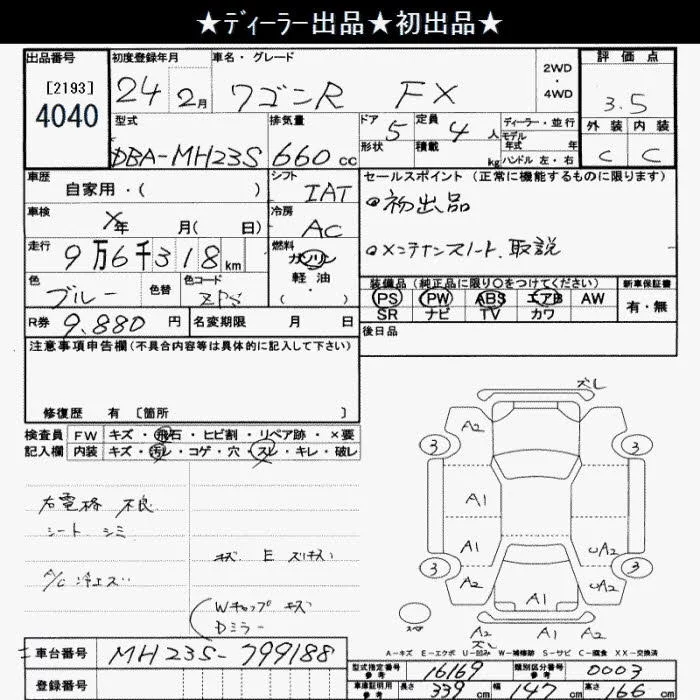 ★ディーラー出品★初出品★
出品番号 [2193] 4040
初度登録年月 24 2月
車名・グレード ワゴンR FX
2WD・4WD
評価点 3.5
外装 内装
C C
型式 DBA-MH23S
排気量 660 cc
ドア 5 形状
定員 4 人 積載 kg
ディーラー・並行
モデル年式 年
ハンドル 左・右
車歴 自家用・( )
シフト IAT
セールスポイント(正常に機能するものに限ります)
初出品
メンテナンスノート、取説
車検 X年 月( 日)
冷房 AC
走行 9万6千318km
燃料 ガソリン
軽油
( ・ )
色 ブルー 色替 色コード
装備品(純正品に限り○をつけてください)
PS PW ABS エアB AW
SR ナビ TV カワ
新車保証書
有・無
R券 9.880円 名変期限 月 日
後日品
注意事項申告欄(不具合内容等は具体的に記入して下さい)
修復歴 有 〔箇所 〕
検査員 FW キズ・飛石・ヒビ割・リペア跡・×要
記入欄 内装 キズ・汚レ・コゲ・穴・スレ・キレ・破レ
右電格 不良
シート シミ
A/C 冷えズ
キズ E スリキズ
Wチップ キズ
Dミラー
ズレ
A2
3 3
A1
A1 UA2
3 3
A2 UA2
A1
スペア
A2 A1 A2
A2
A-キズ E-エクボ U-凹み W-補修跡 S-サビ C-腐食 XX-交換済
車台番号 MH23S-799188
登録番号
型式指定番号 参考 16169 類別区分番号 参考 0003
車庫証明用 参考 長さ 339 cm 幅 147 cm 高さ 166 cm